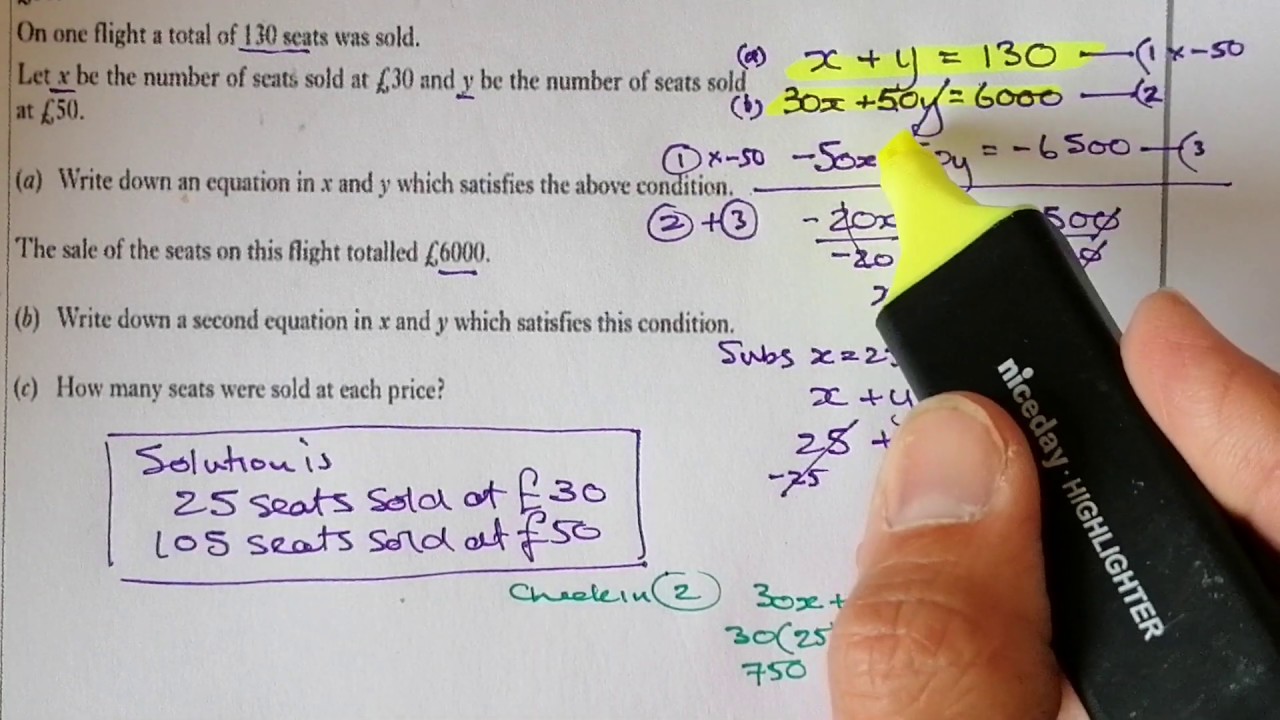 On one flight a total of 130 seats was sold.
Let x be the number of seats sold at £30 and y be the number of seats sold
at £50.
(a) Write down an equation in x and y which satisfies the above condition.
The sale of the seats on this flight totalled £6000.
(b) Write down a second equation in x and y which satisfies this condition.
(c) How many seats were sold at each price?
Solution is
25 seats sold at £30
105 seats sold at £50
(a) x + y = 130 —(1 x-50
(b) 30x + 50y = 6000 —(2
① x-50 -50x 0y = -6500 —(3
② + ③ -20x 500
-20 0
x
Subs x = 2
x + y
25 +
-25
Check in ② 30x +
30(25
750
niceday · HIGHLIGHTER